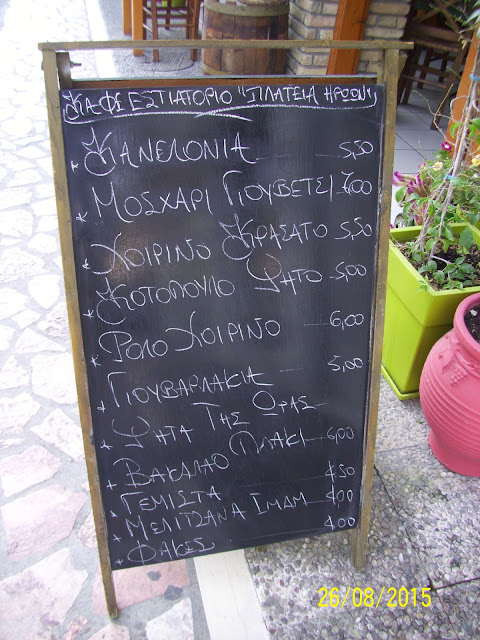 ΚΑΦΕΕΣΤΙΑΤΟΡΙΟ "ΠΛΑΤΕΙΑ ΗΡΩΩΝ"
* ΚΑΝΕΛΟΝΙΑ 5,50
* ΜΟΣΧΑΡΙ ΓΙΟΥΒΕΤΣΙ 7,00
* ΧΟΙΡΙΝΟ ΚΡΑΣΑΤΟ 5,50
* ΚΟΤΟΠΟΥΛΟ ΨΗΤΟ 5,00
* ΡΟΛΟ ΧΟΙΡΙΝΟ 6,00
* ΓΙΟΥΒΑΡΛΑΚΙΑ 5,00
* ΨΗΤΑ ΤΗΣ ΩΡΑΣ
* ΒΑΚΑΛΑΟ ΠΛΑΚΙ 6,00
* ΓΕΜΙΣΤΑ 4,50
* ΜΕΛΙΤΖΑΝΑ ΙΜΑΜ 4,00
* ΦΑΚΕΣ 4,00
26/08/2015